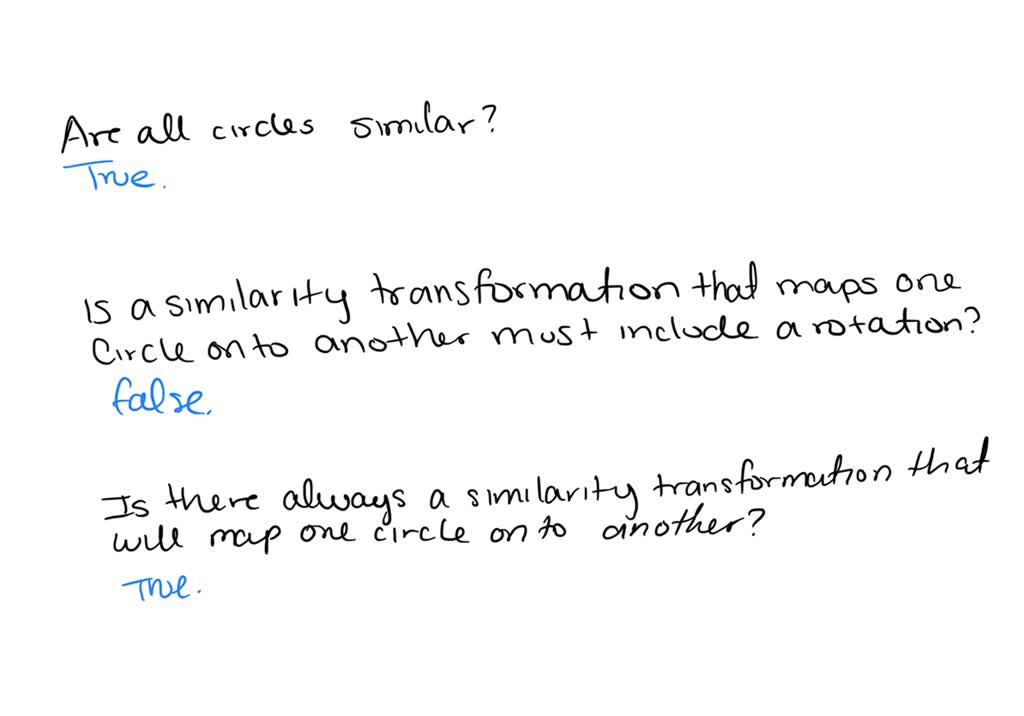 Are all circles similar?
True.
Is a similarity transformation that maps one
Circle on to another must include a rotation?
false.
Is there always a similarity transformation that
will map one circle on to another?
True.